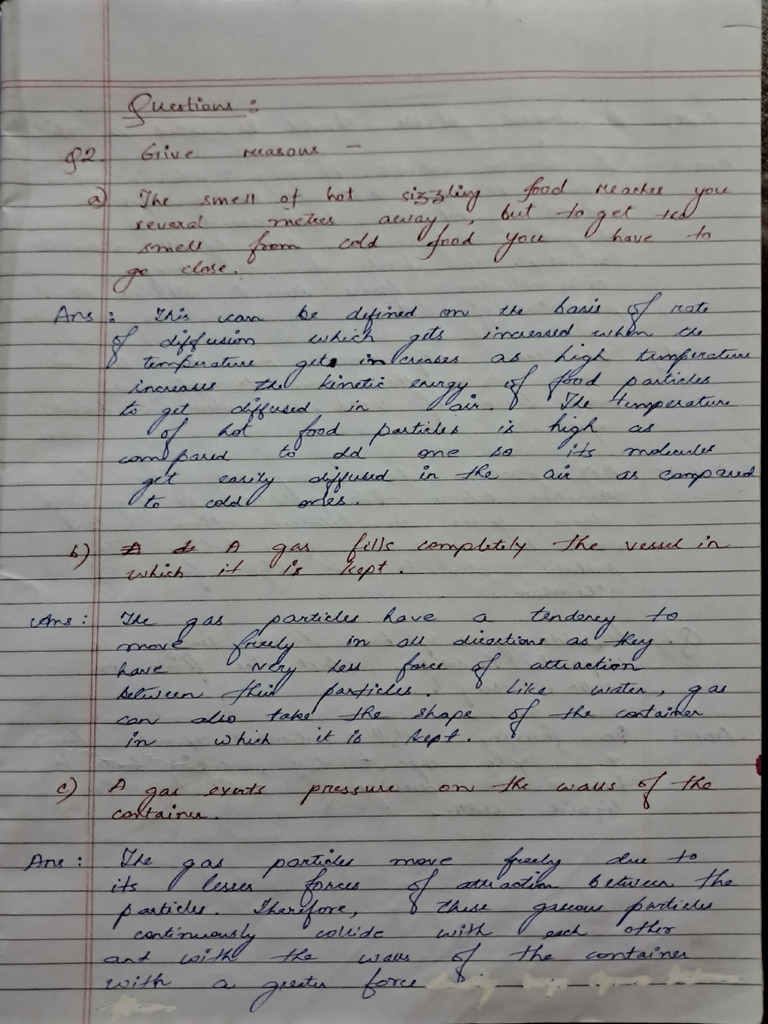 Questions :
Q2. Give reasons -
a) The smell of hot sizzling food reaches you
several metres away, but to get the
smell from cold food you have to
go close.
Ans : This can be defined on the basis of rate
of diffusion which gets increased when the
temperature gets increases as high temperature
increase the kinetic energy of food particles
to get diffused in air. The temperature
of hot food particles is high as
compared to old one so its molecules
get easily diffused in the air as compared
to cold ones.
b) A gas fills completely the vessel in
which it is kept.
Ans : The gas particles have a tendency to
move freely in all directions as they
have very less force of attraction
between their particles. Like water, gas
can also take the shape of the container
in which it is kept.
c) A gas exerts pressure on the walls of the
container.
Ans : The gas particles move freely due to
its lesser forces of attraction between the
particles. Therefore, these gaseous particles
continuously collide with each other
and with the walls of the container
with a greater force